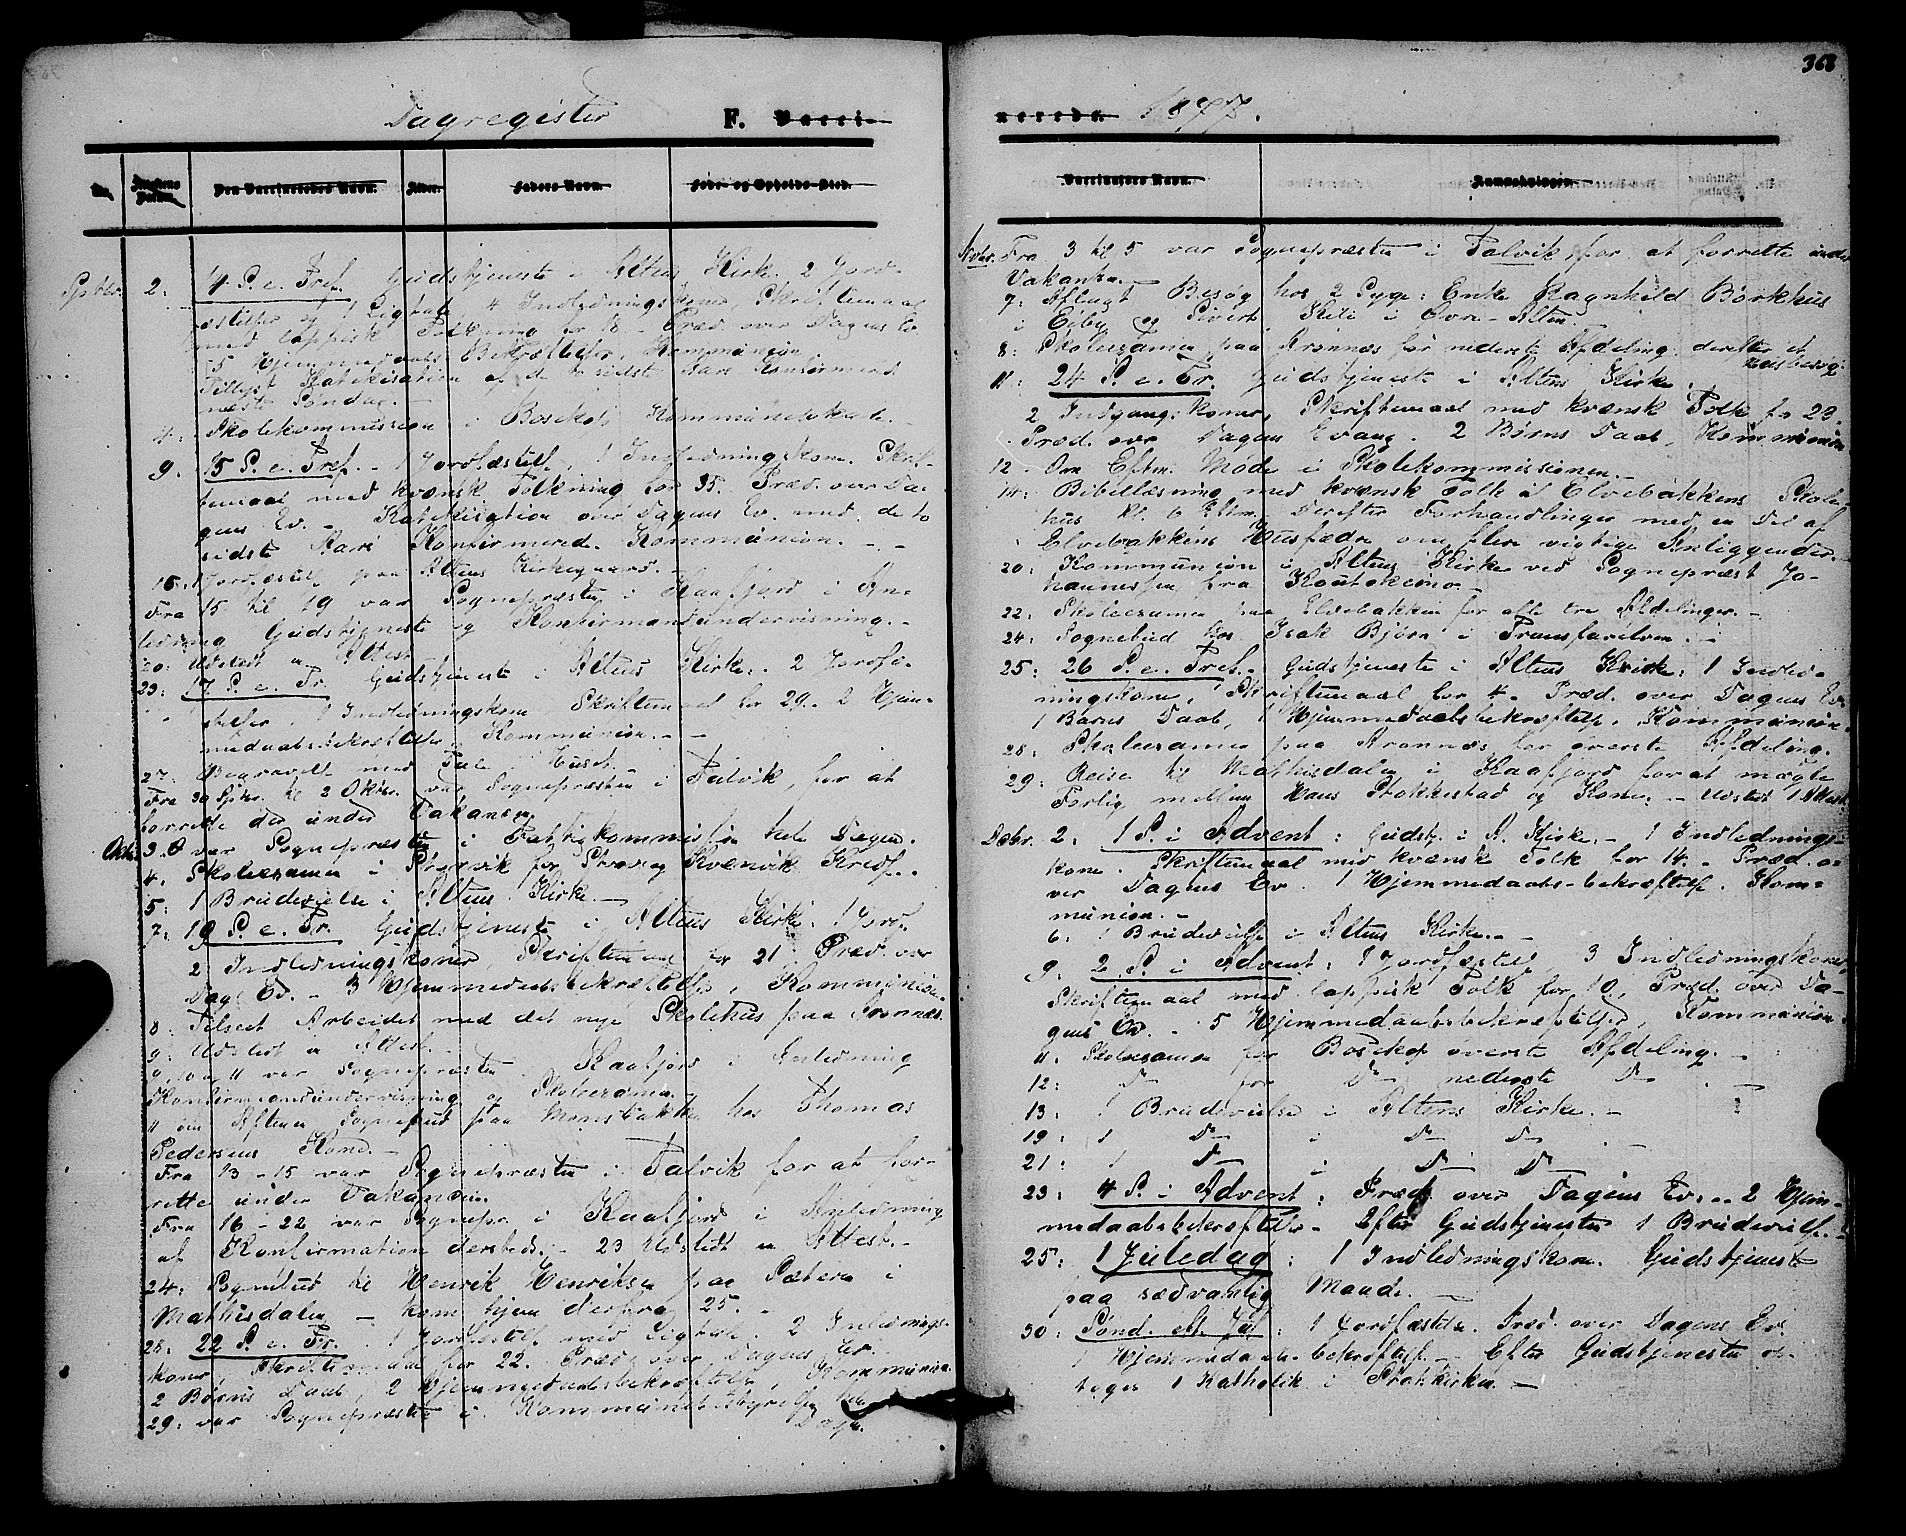 368
Dagregister F. Vacci-
nerede. 1877.
No. Den Vaccineredes Navn. Alder. Faders Navn. Føde- og Opholds-Sted.
Vaccinators Navn. Anmærkninger.
Sptbr. 2: 14 S. e. Tref. Gudstjeneste i Altens Kirke. 2 Jord-
fæstelser og 1 Ligtale, 4 Indledningskoner, Skriftemaal
med lappisk Tolkning for 18. Præd. over Dagens Ev.
5 Hjemmedaabs Bekræftelser, Kommunion.
Tillyst Katekisation af de to sidste Aars Konfirmered.
næste Søndag. -
4: Skolekommission i Bosekop Kommunelokale. -
9. 15 S. e. Tref. - 1 Jordfæstelse, 1 Indledningskone. Skrif-
temaal med kvænsk Tolkning for 35. Præd. over Da-
gens Ev. - Katekisation over Dagens Ev. med de to
sidste Aars Konfirmered. Kommunion. -
15: 1 Jordfæstelse paa Altens Kirkegaard. -
Fra 15 til 19 var Sognepræsten i Kaafjord i An-
ledning Gudstjeneste og Konfirmandundervisning. -
20: Udstedt en Attest. -
23: 17 S. e. Tr. Gudstjeneste i Altens Kirke. 2 Jordfæ-
stelser, 1 Indledningskone, Skriftemaal for 29. 2 Hjem-
medaabsbekræftelser, Kommunion. -
27: Begravelse med Tale i Huset. -
Fra 30 Sptbr. til 2 Oktbr. var Sognepræsten i Talvik, for at
forrette der under Vakansen.
Oktr. 3. var Sognepræsten i Fattigkommission hele Dagen.
4. Skolexamen i Strømvik for Kvænvik Kreds. -
5: 1 Brudevielse i Altens Kirke. -
7: 19 S. e. Tr. Gudstjeneste i Altens Kirke. 1 Jord.
2 Indledningskoner, Skriftemaal for 21. Præd. over
Dags Ev. - 3 Hjemmedaabsbekræftelser, Kommunion.
8: Tilseet Arbeidet med det nye Skolehus paa Kronnæs.
9: Udstedt en Attest. -
9, 10 og 11 var Sognepræsten i Kaafjord i Anledning
Konfirmandundervisning og Skolexamen.
11 om Aftenen Sognebud paa Monsbakken hos Thomas
Pedersens Kone. -
Fra 13-15 var Sognepræsten i Talvik for at for-
rette under Vakansen.
Fra 16-22 var Sognepr. i Kaafjord i Anledning
af Konfirmation dersteds. - 23 Udstedt en Attest. -
24: Sognebud til Henrik Henriksen paa Sætern i
Mathisdalen - kom hjem derfra 25. -
28: 22 S. e. Tr. - 1 Jordfæstelse med Ligtale. 2 Inledning-
koner, Skriftemaal for 22. Præd. over Dagens Ev.
2 Børns Daab, 2 Hjemmedaabsbekræftelser, Kommunion.
29: var Sognepræsten i Kommunebestyrelse hele
Dagen.
Nvbr. Fra 3 til 5 var Sognepræsten i Talvik for at forrette under
Vakansen. -
7: Aflagt Besøg hos 2 Syge: Enke Ragnhild Børkhus
i Eiby og Sivert Kiti i Øvre-Alten. -
8: Skolexamen paa Kronnæs for nederste Afdeling, derefter et
Husbesøg.
11: 24 S. e. Tr. Gudstjeneste i Altens Kirke.
2 Indgangskoner, Skriftemaal med kvænsk Tolk for 23.
Præd. over Dagens Evang. 2 Børns Daab, Kommunion
12. Om Efterm. Møde i Skolekommissionen. -
14: Bibellæsning med kvænsk Tolk i Elvebakkens Skole-
hus Kl. 6 Efterm. Derefter Forhandlinger med en Del af
Elvebakkens Husfædre om flere vigtige Anliggender.
20: Kommunion i Altens Kirke ved Sognepræst Jo-
hannessen fra Koutokeino. -
22: Skolexamen paa Elvebakken for alle tre Afdelinger. -
24: Sognebud hos Isak Bjørn i Transfarelven. -
25: 26 S. e. Tref. - Gudstjeneste i Altens Kirke: 1 Indled-
ningskone, Skriftemaal for 4. Præd. over Dagens Ev.
1 Barns Daab, 1 Hjemmedaabsbekræftelse, Kommunion.
28: Skolexamen paa Kronnæs for øverste Afdeling.
29: Reise til Mathisdalen i Kaafjord for at mægle
Forlig mellem Hans Stokkestad og Kone. - Udstedt 1 Attest.
Decbr. 2: 1 S. i Advent: Gudstj. i A. Kirke. - 1 Indlednings-
kone. Skriftemaal med kvænsk Tolk for 14. - Præd. o-
ver Dagens Ev. 1 Hjemmedaabs-bekræftelse. Kom-
munion. -
6: 1 Brudevielse i Altens Kirke. -
9: 2 S. i Advent: 1 Jordfæstelse, 3 Indledningskoner,
Skriftemaal med lappisk Tolk for 10, Præd. over Da-
gens Ev. - 5 Hjemmedaabsbekræftelser, Kommunion.
11: Skolexamen for Bosekop øverste Afdeling. -
12: Do for Do nederste Do -
13: 1 Brudevielse i Altens Kirke. -
19: 1 Do i Do Do
21: 1 Do i Do Do
23: 4 S. i Advent: Præd. over Dagens Ev. - 2 Hjem-
medaabsbekræftelser - Efter Gudstjenesten 1 Brudevielse.
25: 1 Juledag: 1 Indledningskone. Gudstjeneste
paa sædvanlig Maade. -
30: Sønd. eft. Jul: 1 Jordfæstelse. Præd. over Dagens Ev.
1 Hjemmedaabs-bekræftelse. - Efter Gudstjenesten op-
toges 1 Katholik i Statskirken. -